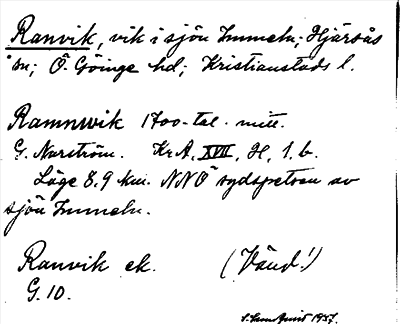 Ranvik, vik i sjön Immeln; Hjärsås
sn; Ö. Göinge hd; Kristianstads l.
Ramnwik 1700-tal. mitt.
G. Norström. Kr.A, XVII, H, 1, b.
Läge 8,9 km. NNÖ sydspetsen av
sjön Immeln.
Ranvik ek. (Vänd!)
G. 10.
1957.